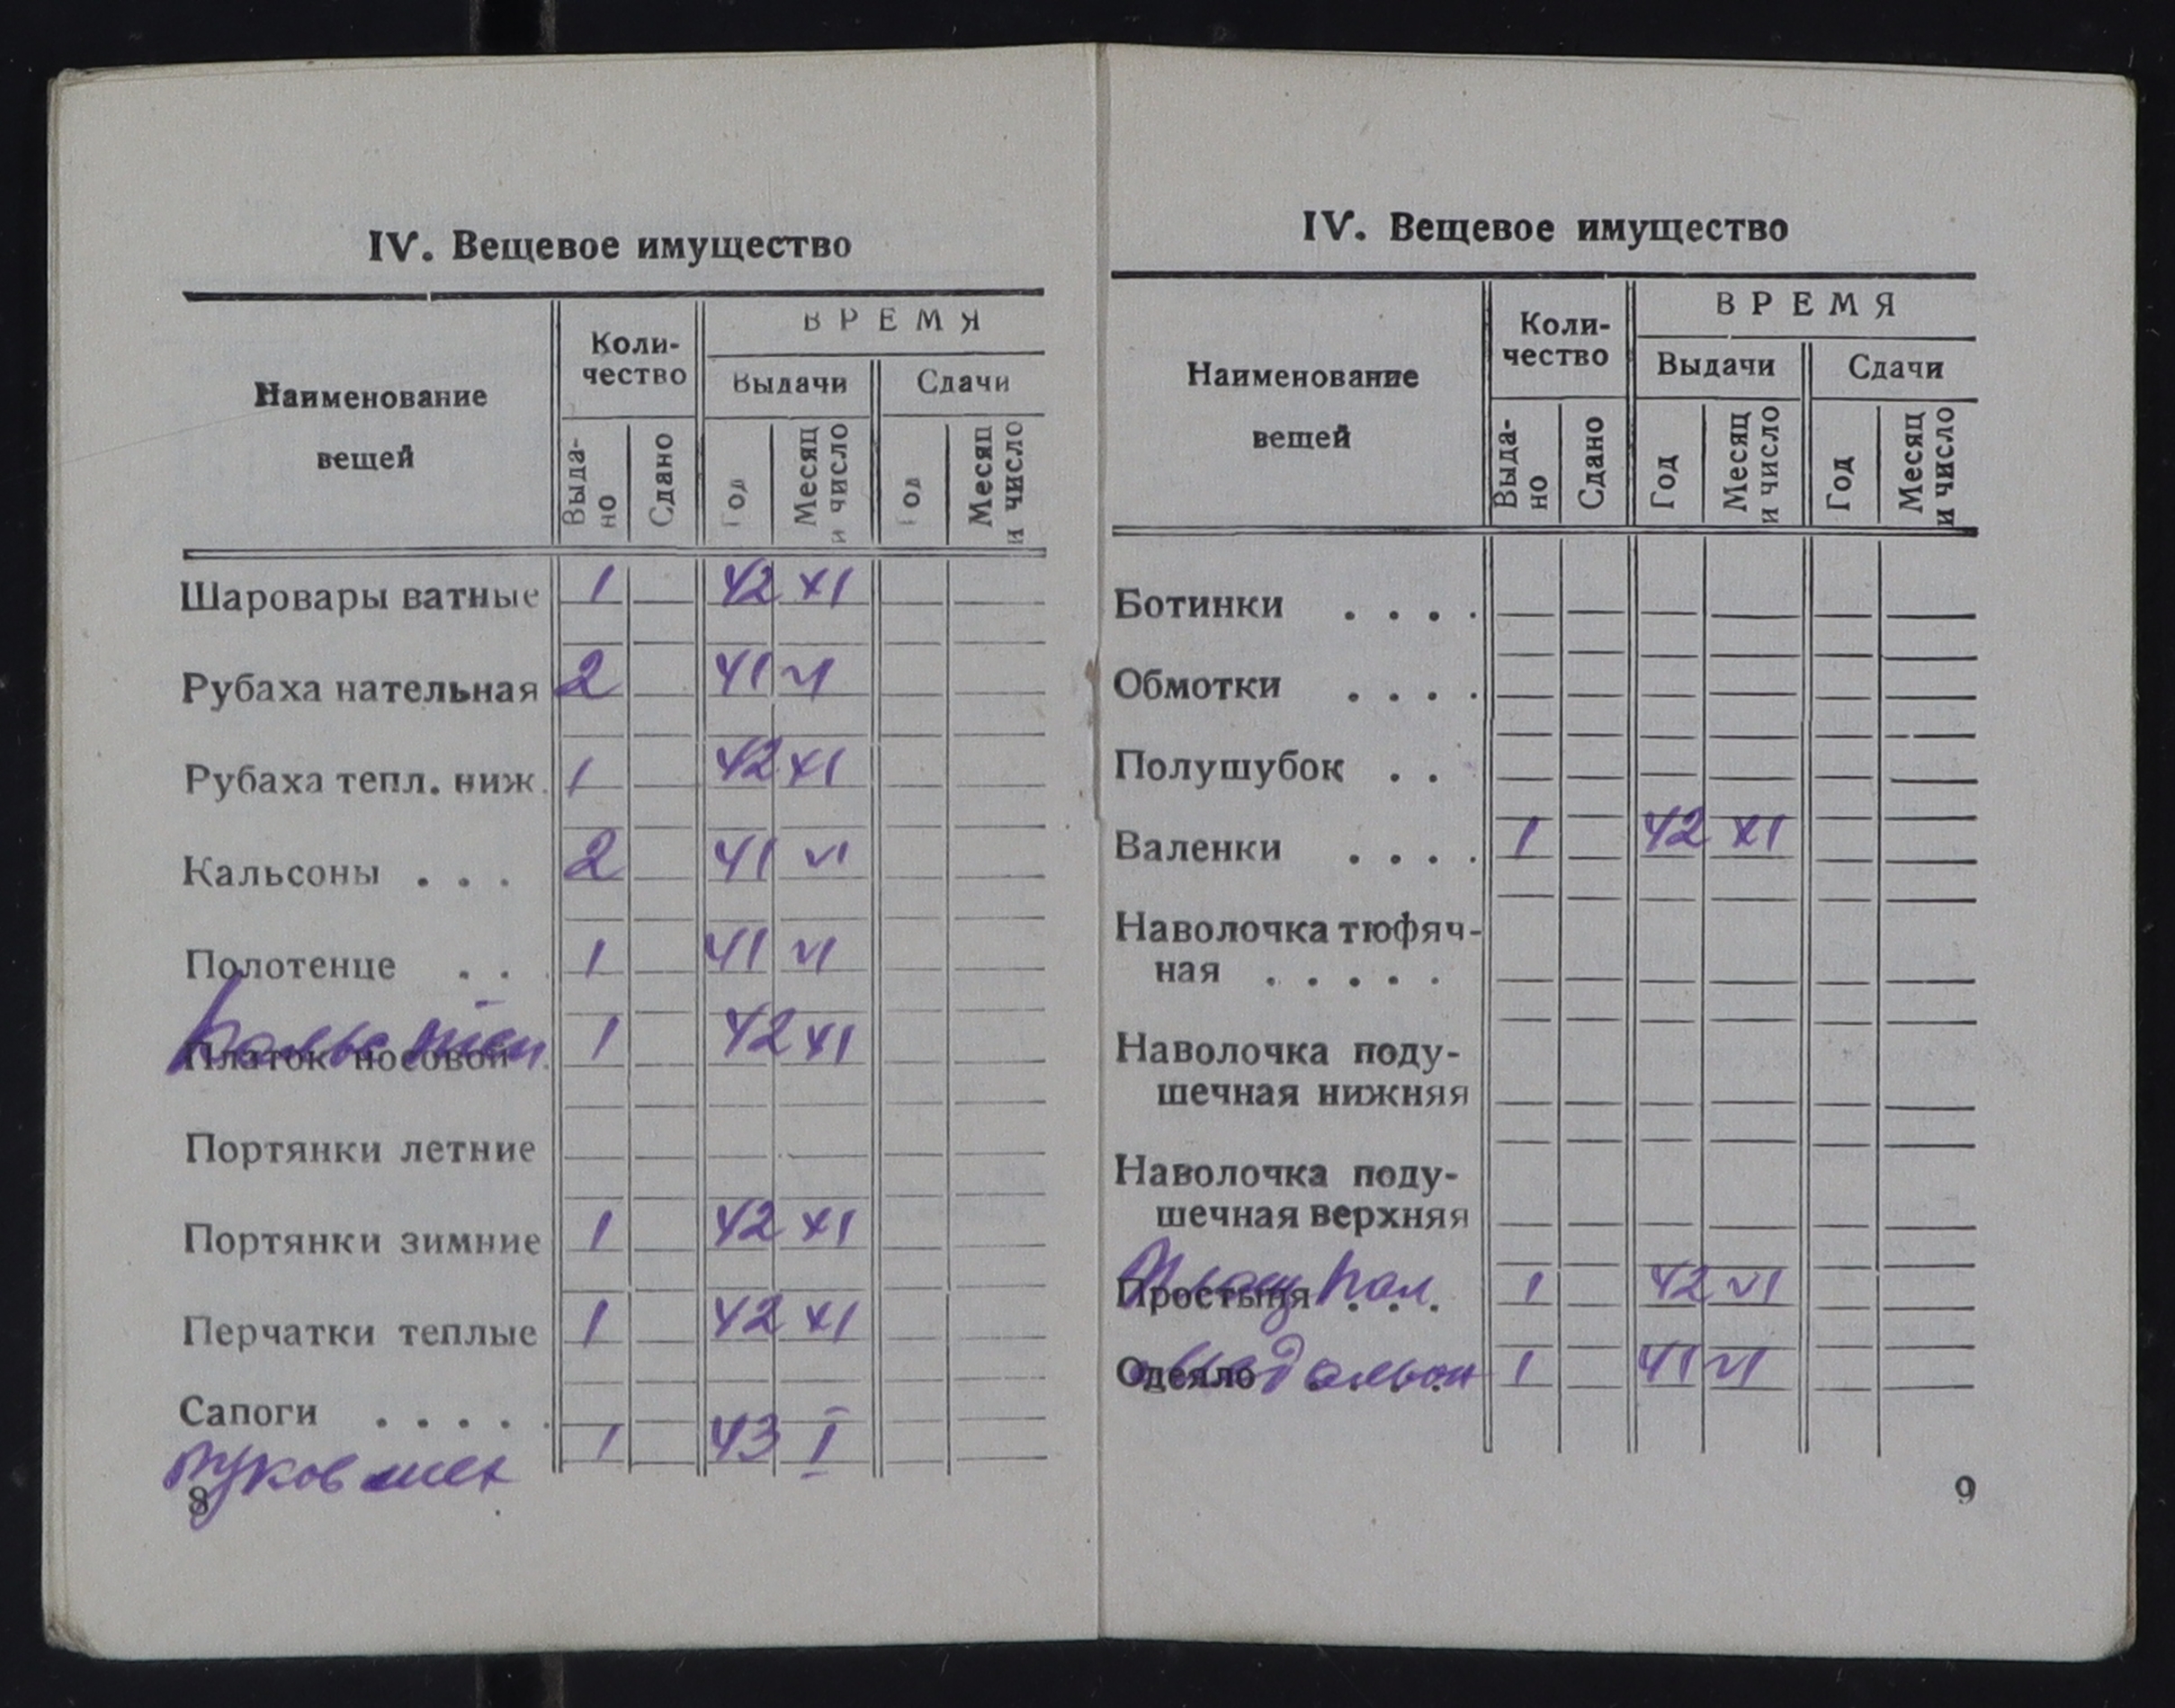 IV. Вещевое имущество
Наименование вещей
Количество
ВРЕМЯ
Выдачи
Сдачи
Выдано
Сдано
Год
Месяц и число
Год
Месяц и число
Шаровары ватные 1 42 XI
Рубаха нательная 2 41 VI
Рубаха тепл. ниж. 1 42 XI
Кальсоны . . . 2 41 VI
Полотенце . . . 1 41 VI
Платок носовой . 1 42 XI
Портянки летние
Портянки зимние 1 42 XI
Перчатки теплые 1 42 XI
Сапоги . . . . .
1 43 I
8
IV. Вещевое имущество
Наименование вещей
Количество
ВРЕМЯ
Выдачи
Сдачи
Выдано
Сдано
Год
Месяц и число
Год
Месяц и число
Ботинки . . . .
Обмотки . . . .
Полушубок . .
Валенки . . . . 1 42 XI
Наволочка тюфяч-
ная . . . . .
Наволочка поду-
шечная нижняя
Наволочка поду-
шечная верхняя
Простыня . . . 1 42 VI
Одеяло 1 41 VI
9